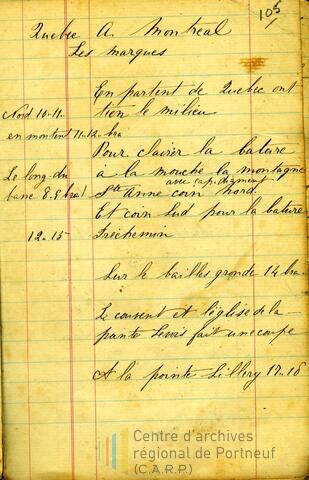 105
Quebec A Montreal
Les marques
En partent de Quebec ont
Nord 10-11- tien le milieu
en montent 11-12- bra
Pour clairer la bature
Le long du à la mouche la montagne
avec cap. dogment
basse 8.8 bra! Ste Anne corn nord.
Et corn Sud pour la bature
12-15 Frechemin
Sur le baillee gronde 14 bra.
Le couvent et l'église de la
pante Levis fait une coupe
A la pointe Sillery 17-18
Centre d'archives
régional de Portneuf
(C.A.R.P.)